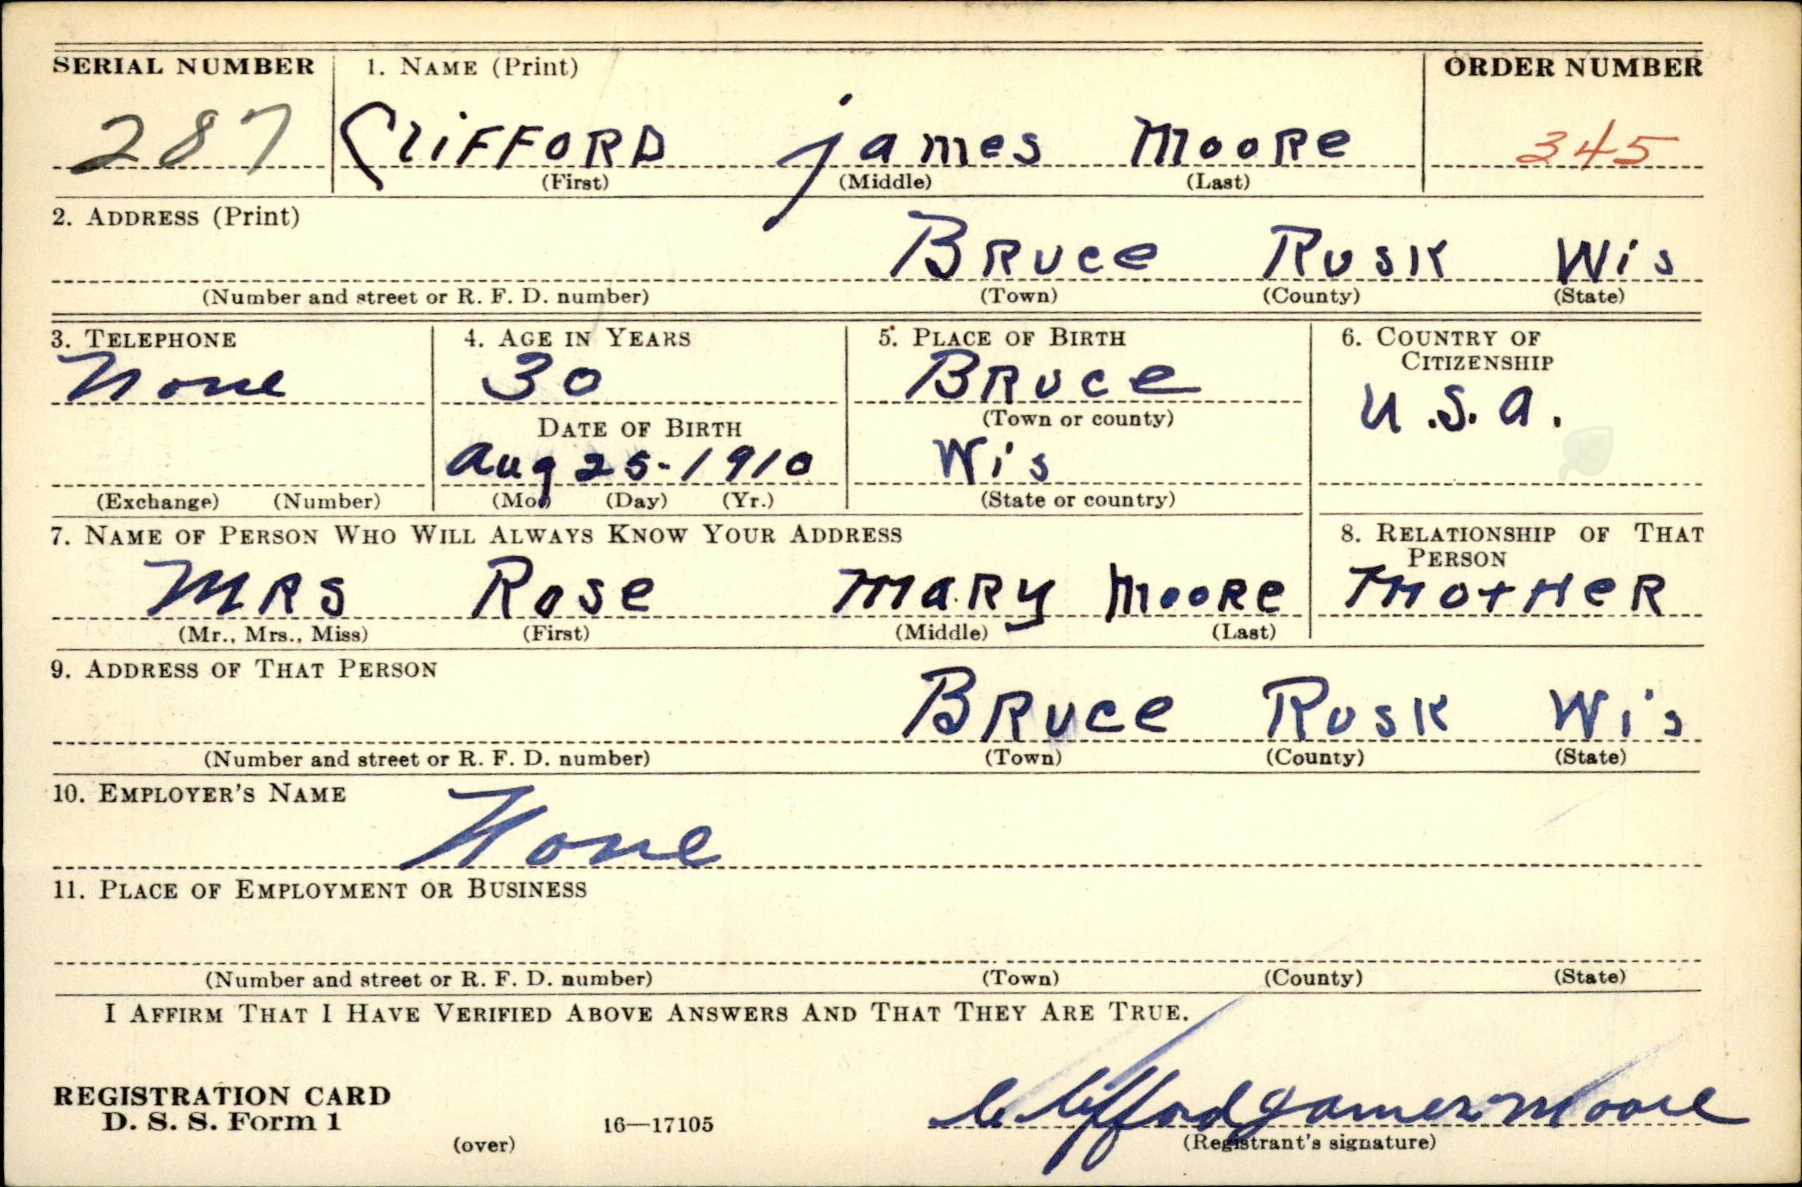 SERIAL NUMBER 1. NAME (Print) ORDER NUMBER
287 Clifford james Moore 345
(First) (Middle) (Last)
2. ADDRESS (Print)
Bruce Rusk Wis
(Number and street or R. F. D. number) (Town) (County) (State)
3. TELEPHONE 4. AGE IN YEARS 5. PLACE OF BIRTH 6. COUNTRY OF
CITIZENSHIP
None 30 Bruce U.S.A.
DATE OF BIRTH (Town or county)
Aug 25-1910 Wis
(Exchange) (Number) (Mo.) (Day) (Yr.) (State or country)
7. NAME OF PERSON WHO WILL ALWAYS KNOW YOUR ADDRESS 8. RELATIONSHIP OF THAT
PERSON
MRS Rose Mary Moore Mother
(Mr., Mrs., Miss) (First) (Middle) (Last)
9. ADDRESS OF THAT PERSON
Bruce Rusk Wis
(Number and street or R. F. D. number) (Town) (County) (State)
10. EMPLOYER'S NAME
None
11. PLACE OF EMPLOYMENT OR BUSINESS
(Number and street or R. F. D. number) (Town) (County) (State)
I AFFIRM THAT I HAVE VERIFIED ABOVE ANSWERS AND THAT THEY ARE TRUE.
REGISTRATION CARD
D. S. S. Form 1 16—17105 Clifford James Moore
(over) (Registrant's signature)